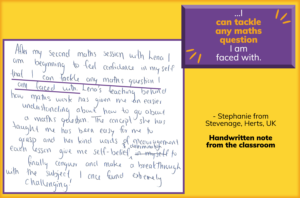 After my second maths session with Lena I
am beginning to feel confidence in myself
that I can tackle any maths question I
am faced with. Lena's teaching behind
how maths work has given me an easier
understanding about how to go about
a maths question. The concept she has
taught me has been easy for me to
grasp and her kind words of encouragement
each lesson give me self-belief
in myself to
finally conquer and make a breakthrough
with the subject I once found extremely
challenging!
...I
can tackle
any maths
question
I am
faced with.
- Stephanie from
Stevenage, Herts, UK
Handwritten note
from the classroom